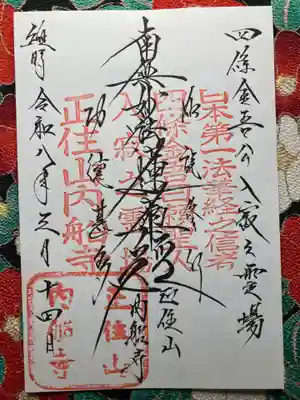 四條金吾公入寂之靈場
日本第一法華経之信者
四條金吾日頼上人
南無妙法蓮華経
入寂之霊場
正住山
内船寺
功徳甚多
正住山内船寺
維時令和八年三月十四日
正住山
内船寺